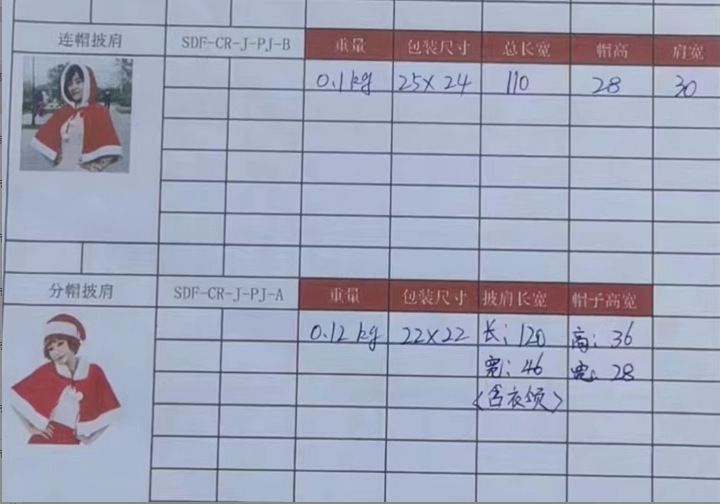 连帽披肩 SDF-CR-J-PJ-B 重量 包装尺寸 总长宽 帽高 肩宽
0.1kg 25×24 110 28 30
分帽披肩 SDF-CR-J-PJ-A 重量 包装尺寸 披肩长宽 帽子高宽
0.12kg 22×22 长：120 高：36
宽：46 宽：28
〈含衣领〉